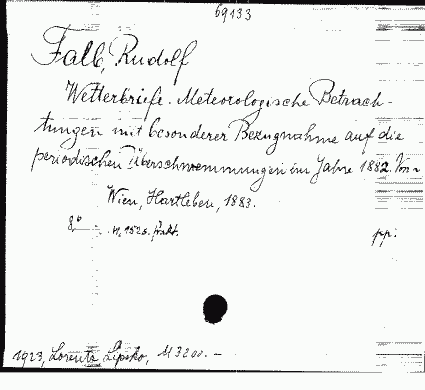 69133
Falb, Rudolf
Wetterbriefe. Meteorologische Betrach-
tungen mit besonderer Bezugnahme auf die
periodischen Überschwemmungen im Jahre 1882. Von
Wien, Hartleben, 1883.
8°
pp.
1923, Lorentz Lipsko, M 3200.–